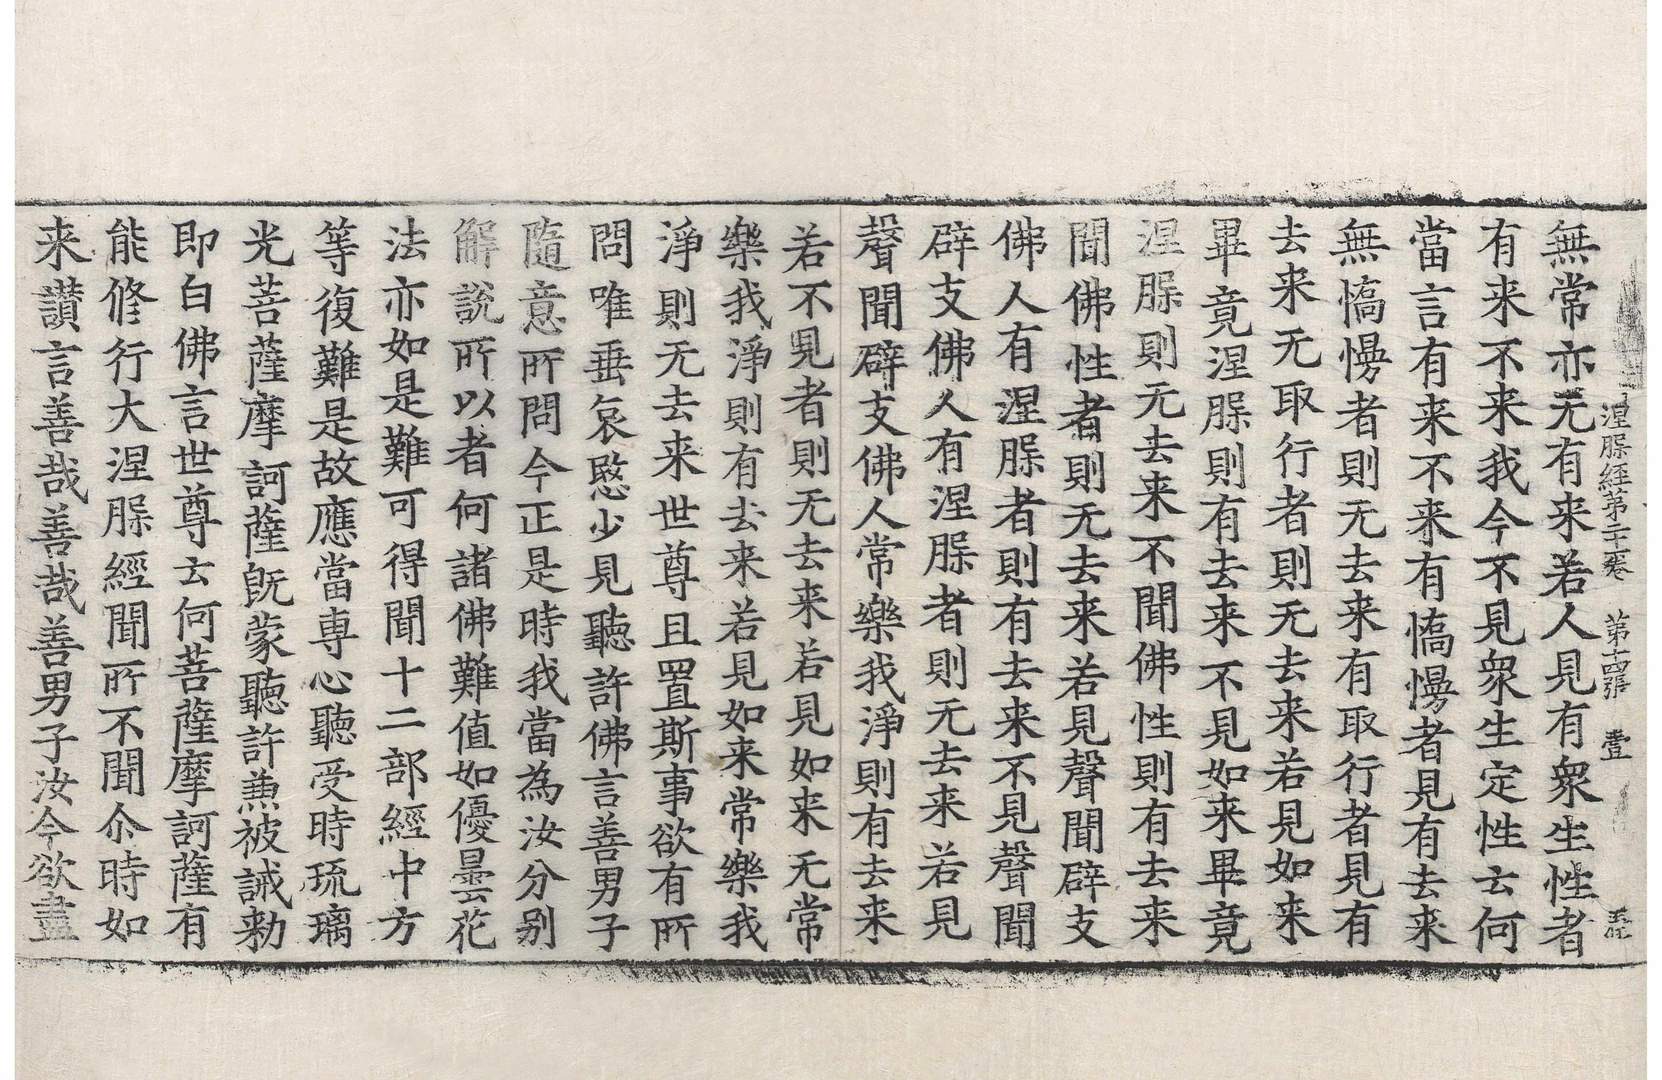 涅槃經第二十卷 第十四張 壹
無常亦无有来若人見有衆生性者
有来不来我今不見衆生定性云何
當言有来不来有憍慢者見有去来
無憍慢者則无去来有取行者見有
去来无取行者則无去来若見如来
畢竟涅槃則有去来不見如来畢竟
涅槃則无去来不聞佛性則有去来
聞佛性者則无去来若見聲聞辟支
佛人有涅槃者則有去来不見聲聞
辟支佛人有涅槃者則无去来若見
聲聞辟支佛人常樂我淨則有去来
若不見者則无去来若見如来无常
樂我淨則有去来若見如来常樂我
淨則无去来世尊且置斯事欲有所
問唯垂哀愍少見聽許佛言善男子
隨意所問今正是時我當為汝分别
解說所以者何諸佛難值如優曇花
法亦如是難可得聞十二部經中方
等復難是故應當專心聽受時琉璃
光菩薩摩訶薩既蒙聽許兼被誡勑
即白佛言世尊云何菩薩摩訶薩有
能修行大涅槃經聞所不聞尒時如
来讚言善哉善哉善男子汝今欲盡